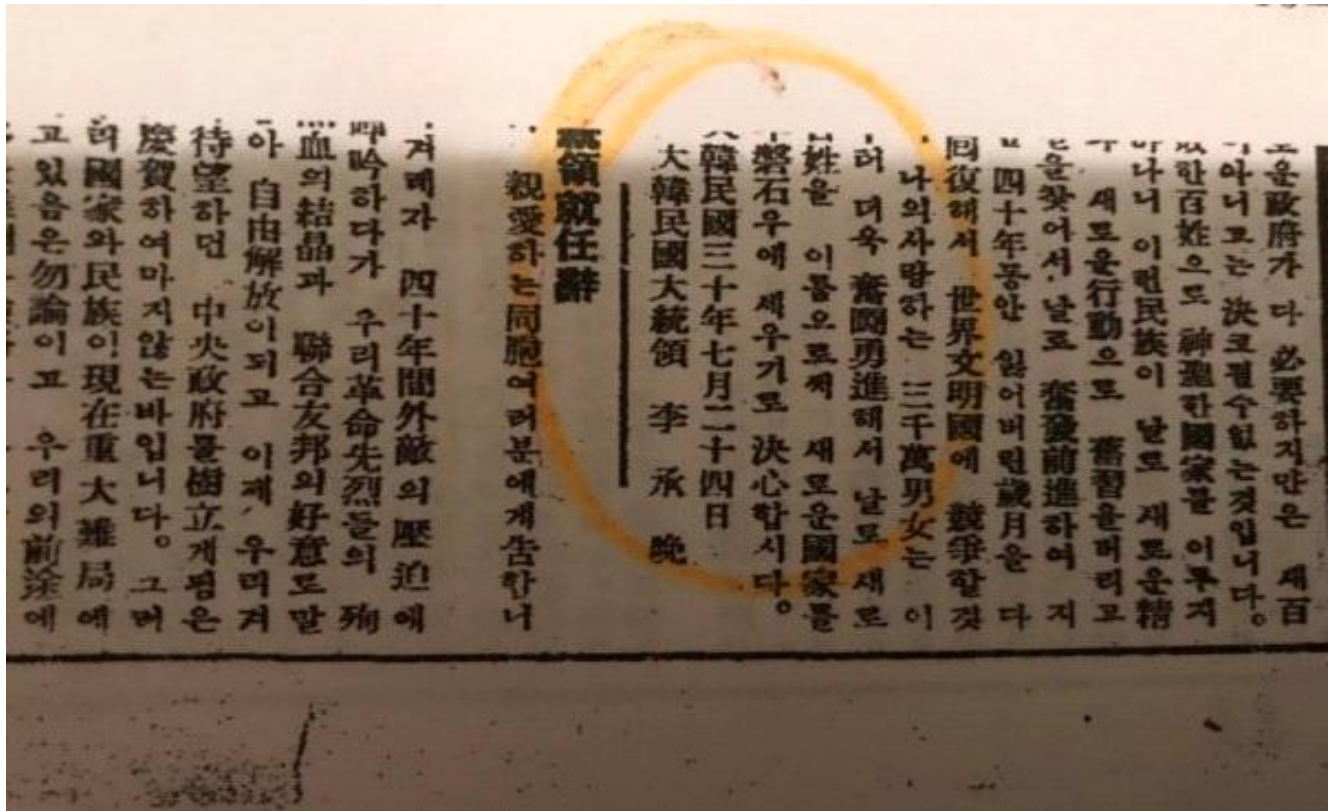 운政府가 다 必要하지만은 새百
아니고는 決코될수없는것입니다。
한百姓으로 神聖한國家를 이루지
나니 이런民族이 날로 새로운精
새로운行動으로 舊習을버리고
을찾어서 날로 奮發前進하여 지
四十年동안 잃어버린歲月을 다
回復해서 世界文明國에 競爭할것
나의사랑하는 三千萬男女는 이
더욱 奮鬪勇進해서 날로 새로
姓을 이룸으로써 새로운國家를
磐石우에 세우기로 決心합시다。
韓民國三十年七月二十四日
大韓民國大統領 李承晩
領就任辭
親愛하는同胞여러분에게告한니
겨레자 四十年間外敵의壓迫에
呻吟하다가 우리革命先烈들의 殉
血의結晶과 聯合友邦의好意로말
아 自由解放이되고 이제, 우리겨
待望하던 中央政府를樹立게됨은
慶賀하여마지않는바입니다。그러
國家와民族이現在重大難局에
고있음은勿論이고 우리의前途에